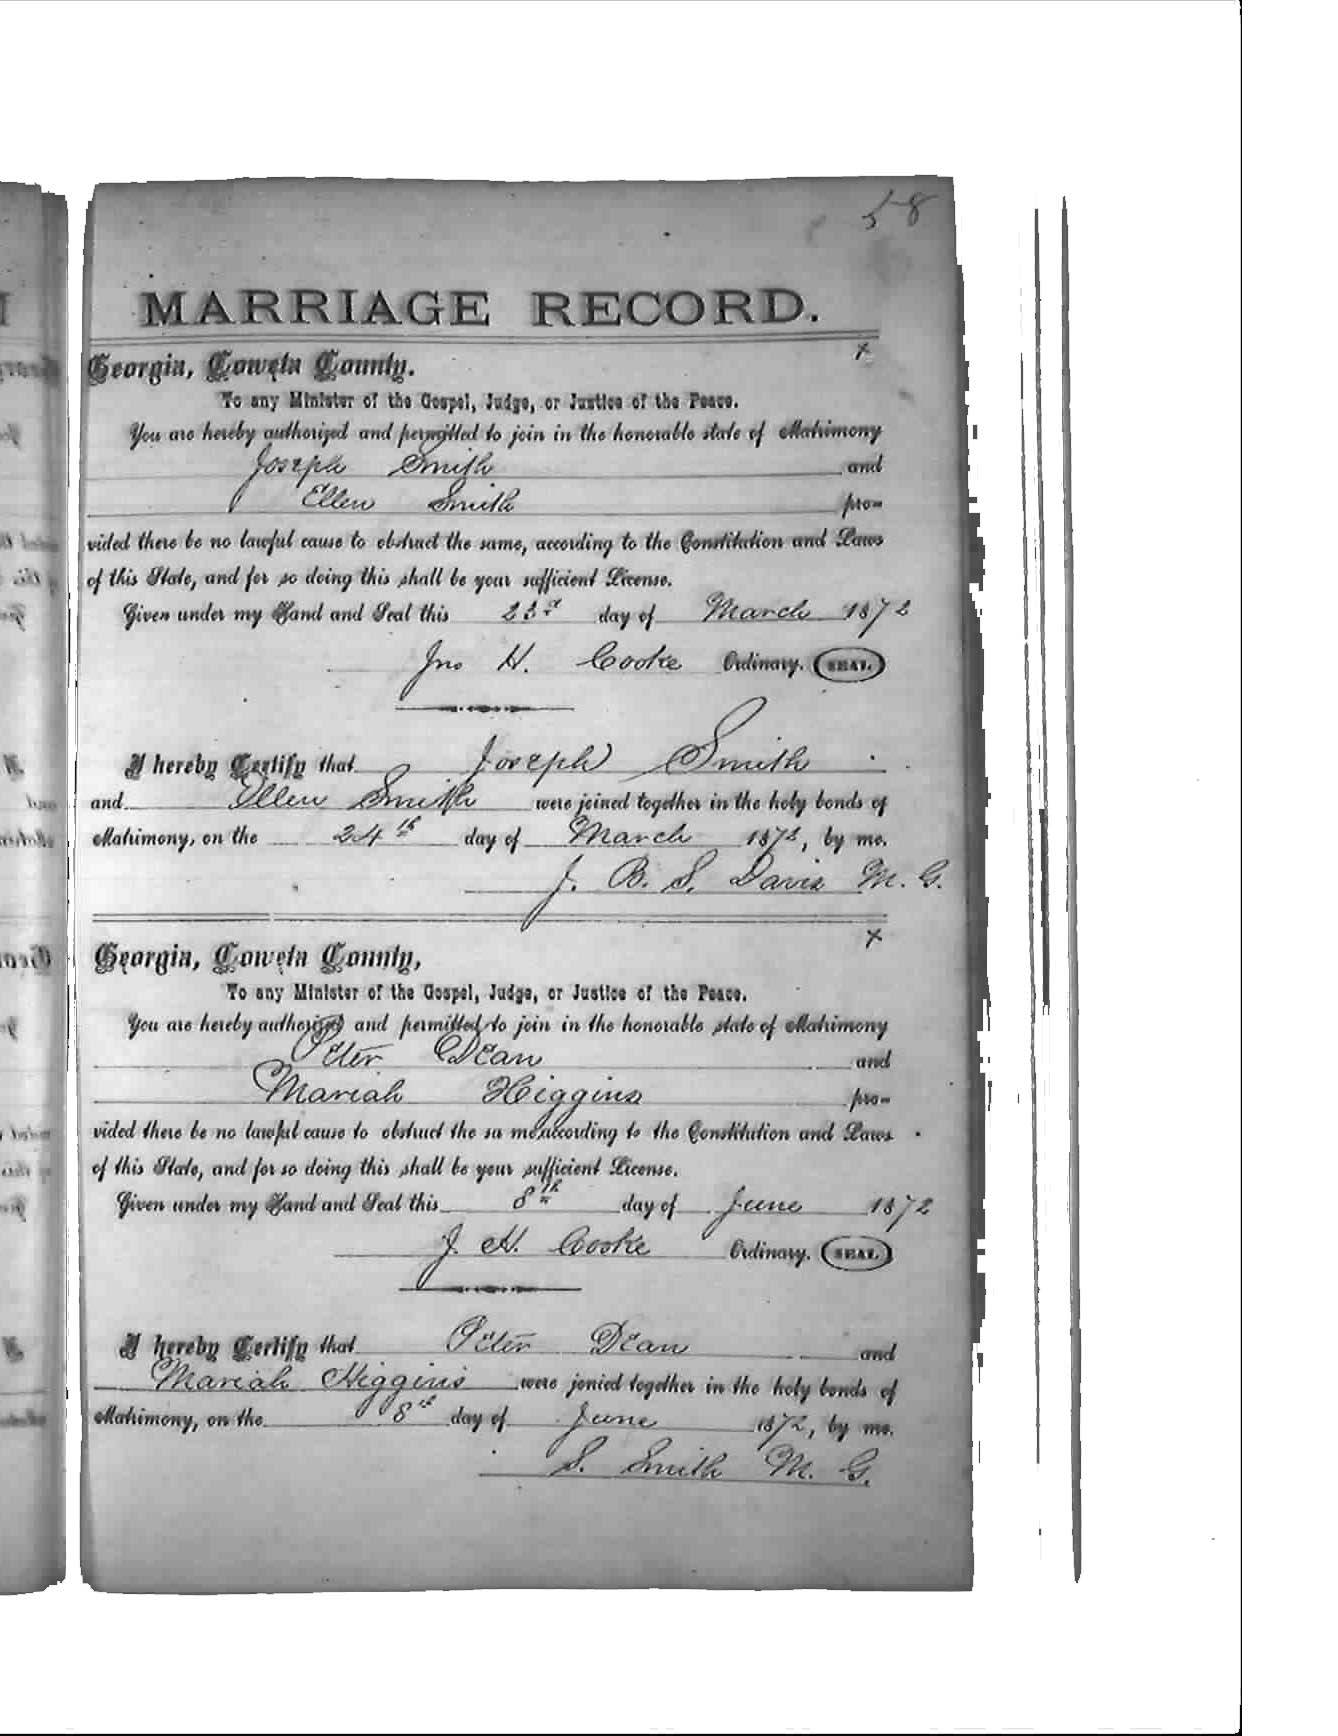 58
MARRIAGE RECORD.
x
Georgia, Coweta County.
To any Minister of the Gospel, Judge, or Justice of the Peace.
You are hereby authorized and permitted to join in the honorable state of Matrimony
Joseph Smith and
Ellen Smith pro-
vided there be no lawful cause to obstruct the same, according to the Constitution and Laws
of this State, and for so doing this shall be your sufficient License.
Given under my Hand and Seal this 23rd day of March 1872
Jno H. Cooke Ordinary. SEAL.
I hereby Certify that Joseph Smith
and Ellen Smith were joined together in the holy bonds of
Matrimony, on the 24th day of March 1872, by me.
J. B. S. Davis M. G.
x
Georgia, Coweta County,
To any Minister of the Gospel, Judge, or Justice of the Peace.
You are hereby authorized and permitted to join in the honorable state of Matrimony
Peter Dean and
Mariah Higgins pro-
vided there be no lawful cause to obstruct the sa me, according to the Constitution and Laws
of this State, and for so doing this shall be your sufficient License.
Given under my Hand and Seal this 8th day of June 1872
J. H. Cooke Ordinary. SEAL.
I hereby Certify that Peter Dean and
Mariah Higgins were jonied together in the holy bonds of
Matrimony, on the 8th day of June 1872, by me.
S. Smith M. G.